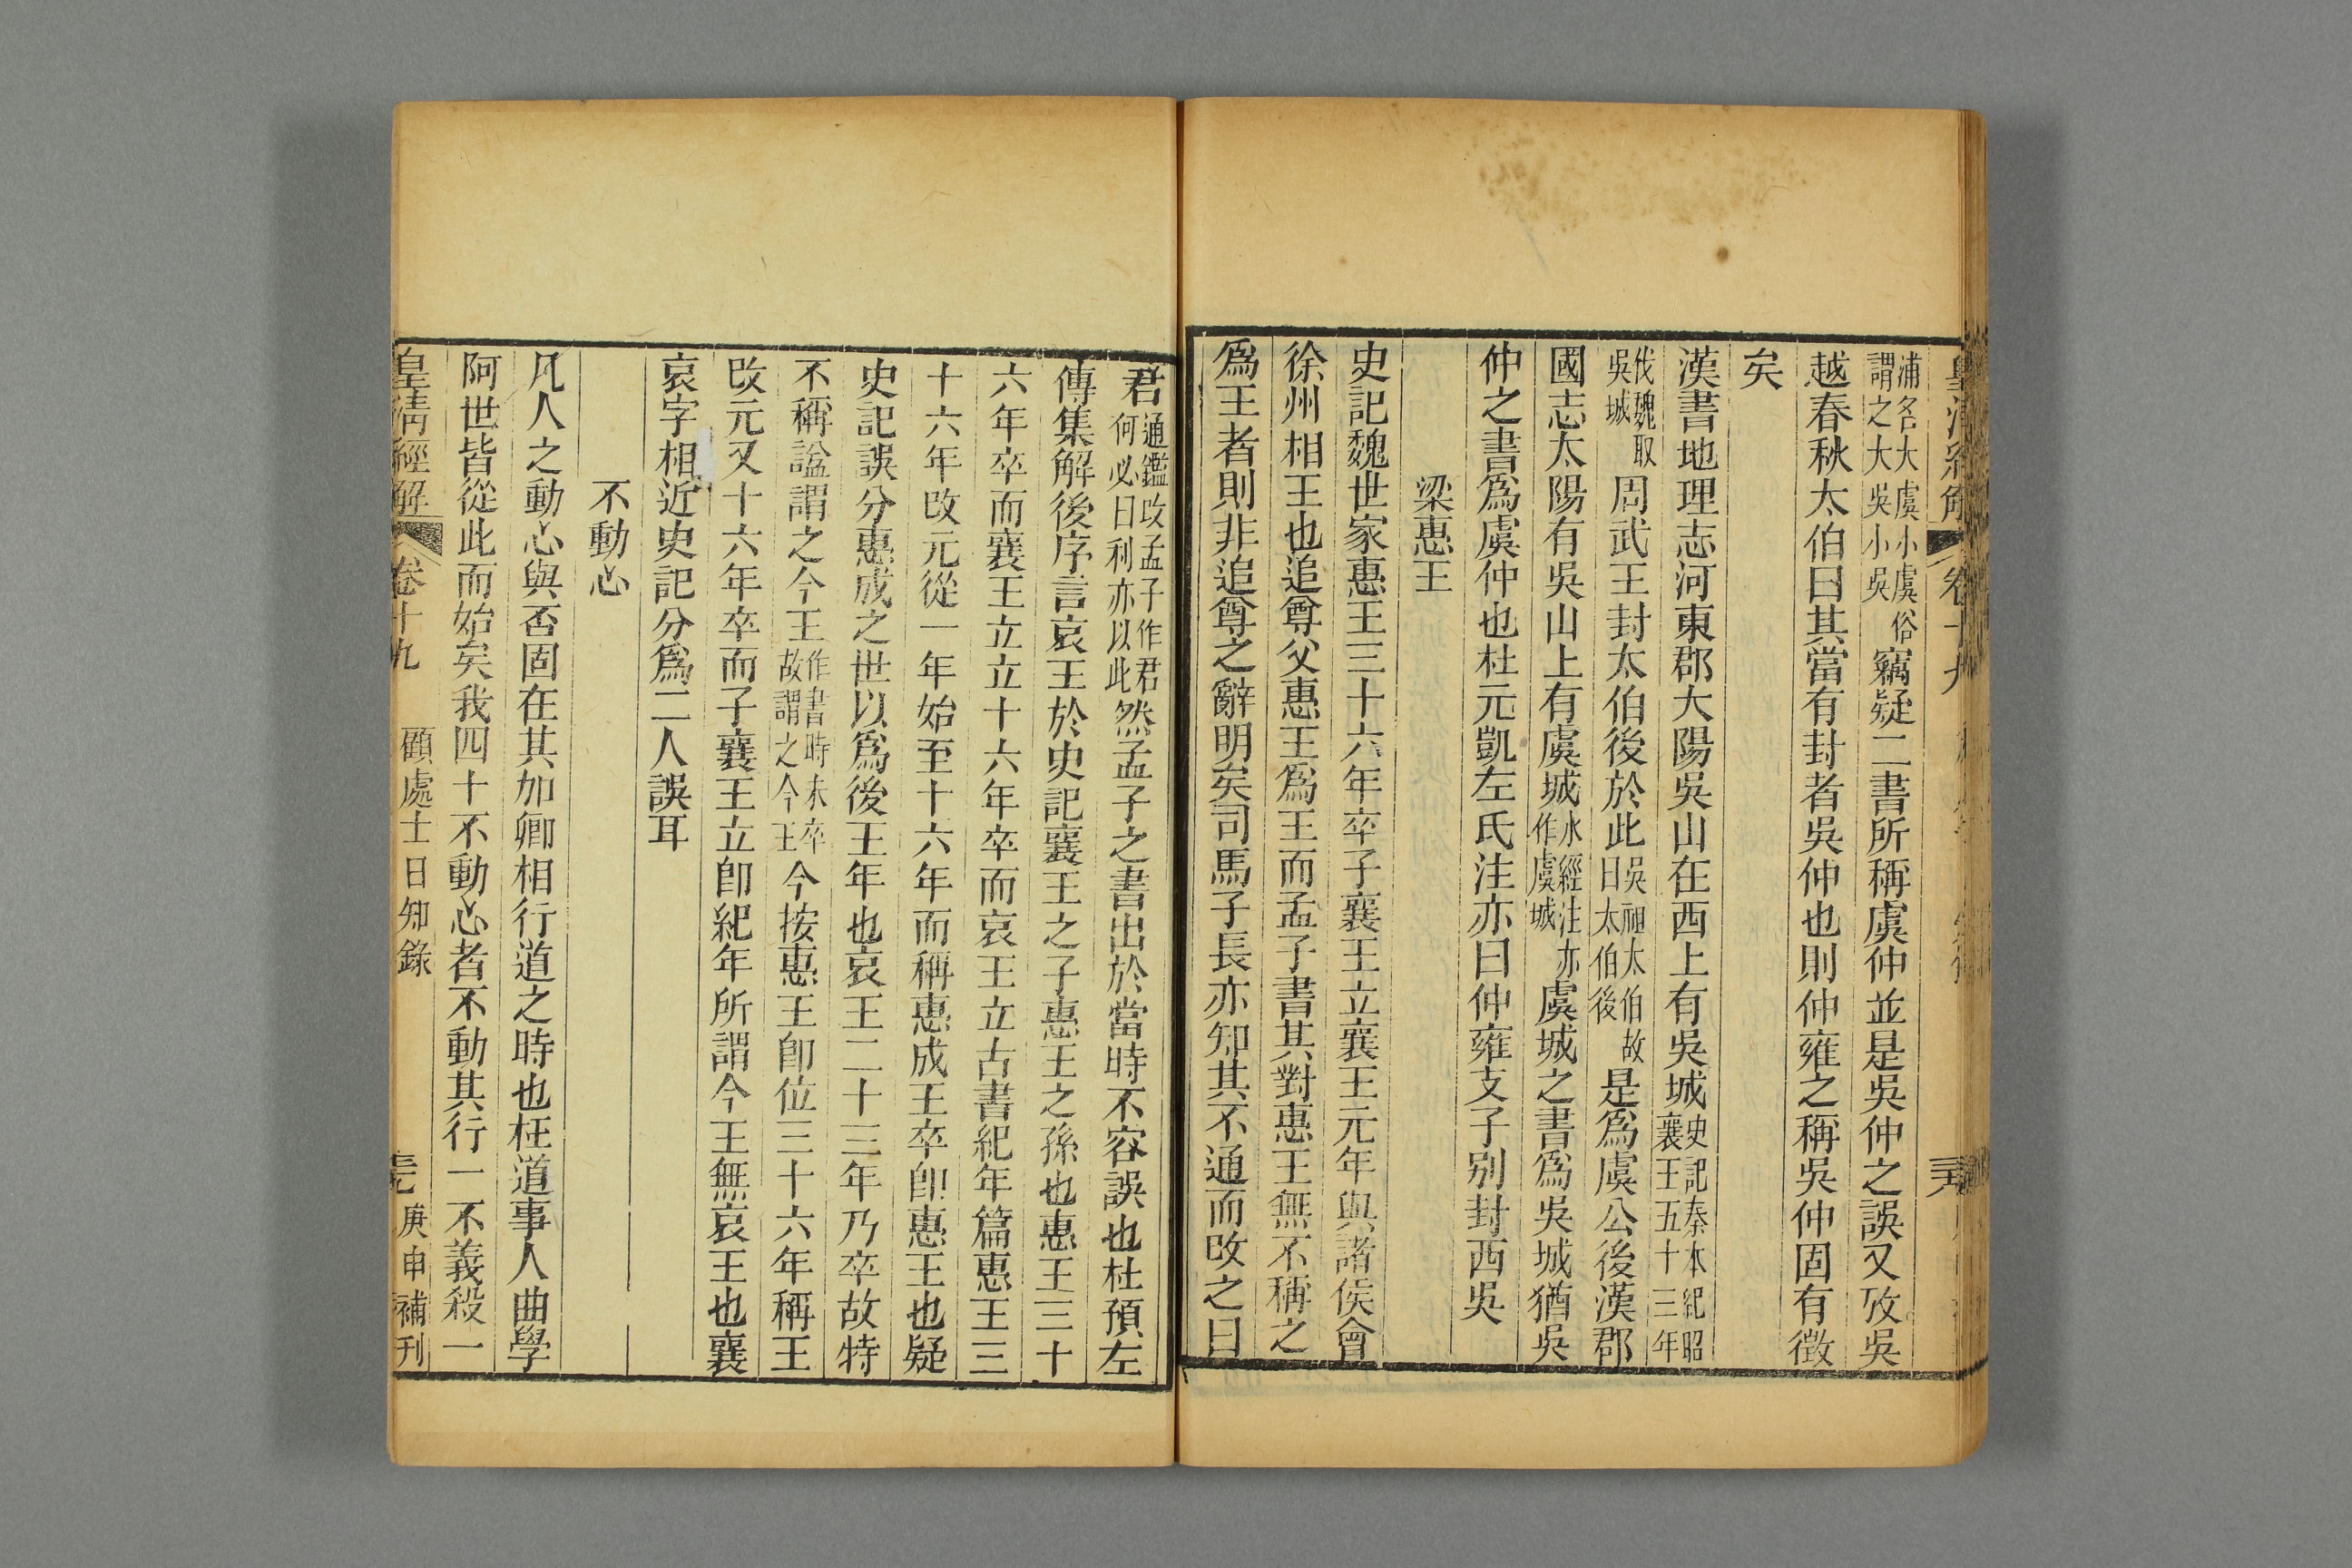 浦名大虞小虞俗謂之大吳小吳竊疑二書所稱虞仲並是吳仲之誤又攷吳
越春秋太伯曰其當有封者吳仲也則仲雍之稱吳仲固有徵
矣
漢書地理志河東郡大陽吳山在西上有吳城史記秦本紀昭襄王五十三年
伐魏取吳城周武王封太伯後於此吳祖太伯故曰太伯後是爲虞公後漢郡
國志太陽有吳山上有虞城水經注亦作虞城虞城之書爲吳城猶吳
仲之書爲虞仲也杜元凱左氏注亦曰仲雍支子别封西吳
梁惠王
史記魏世家惠王三十六年卒子襄王立襄王元年與諸侯會
徐州相王也追尊父惠王爲王而孟子書其對惠王無不稱之
爲王者則非追尊之辭明矣司馬子長亦知其不通而改之曰
君通鑑改孟子作君何必曰利亦以此然孟子之書出於當時不容誤也杜預左
傳集解後序言哀王於史記襄王之子惠王之孫也惠王三十
六年卒而襄王立立十六年卒而哀王立古書紀年篇惠王三
十六年改元從一年始至十六年而稱惠成王卒卽惠王也疑
史記誤分惠成之世以爲後王年也哀王二十三年乃卒故特
不稱諡謂之今王作書時未卒故謂之今王今按惠王卽位三十六年稱王
改元又十六年卒而子襄王立卽紀年所謂今王無哀王也襄
哀字相近史記分爲二人誤耳
不動心
凡人之動心與否固在其加卿相行道之時也枉道事人曲學
阿世皆從此而始矣我四十不動心者不動其行一不義殺一
皇清經解 卷十九 顧處士日知錄 庚申補刊